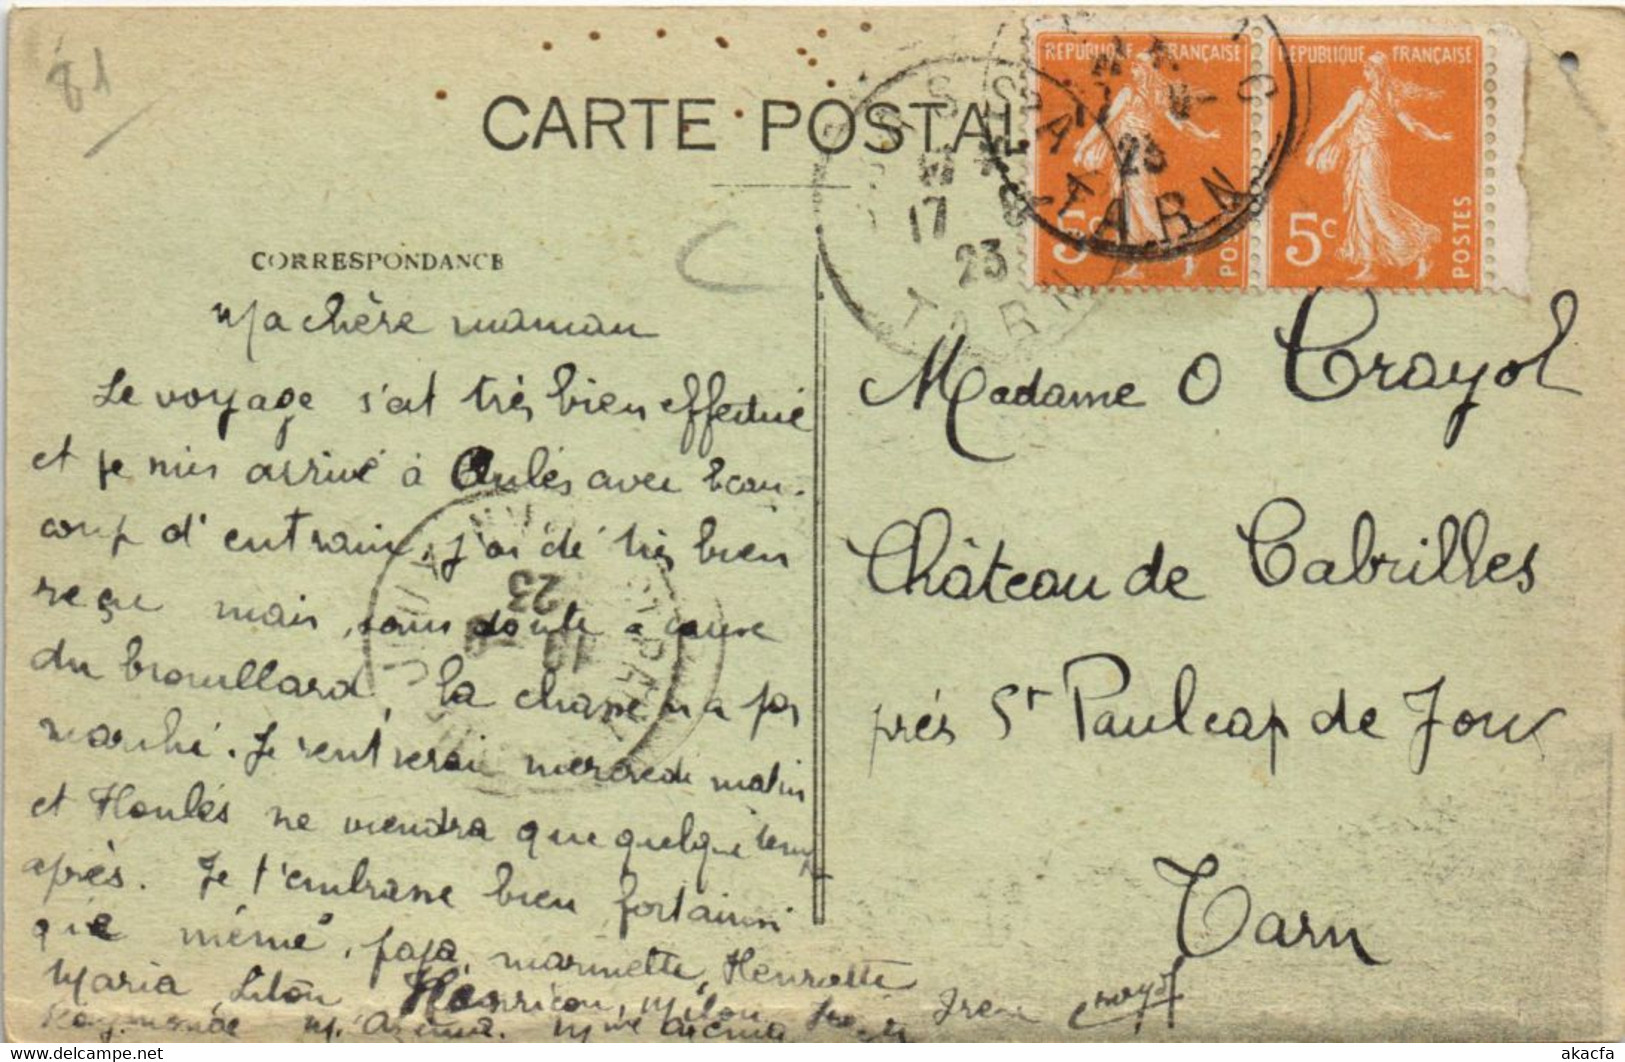 81
CARTE POSTALE
REPUBLIQUE FRANÇAISE
5c POSTES
REPUBLIQUE FRANÇAISE
5c POSTES
17 9
23
TARN
25
TARN
CORRESPONDANCE
Ma chère maman
Le voyage s'est très bien effectué
et je suis arrivé à avec beau-
coup d'entrain, j'ai été très bien
reçu mais, sans doute à cause
du brouillard, la chasse n'a pas
marché. Je rentrerai mercredi matin
et Houlès ne viendra que quelque temps
après. Je t'embrasse bien fort ainsi
que mémé, papa, marinette, Henriette
Maria, Henricou, Milou
Raymonde
Irène
Madame O Crayol
Château de Cabrilles
près St Paul cap de Joux
Tarn
23
akacfa